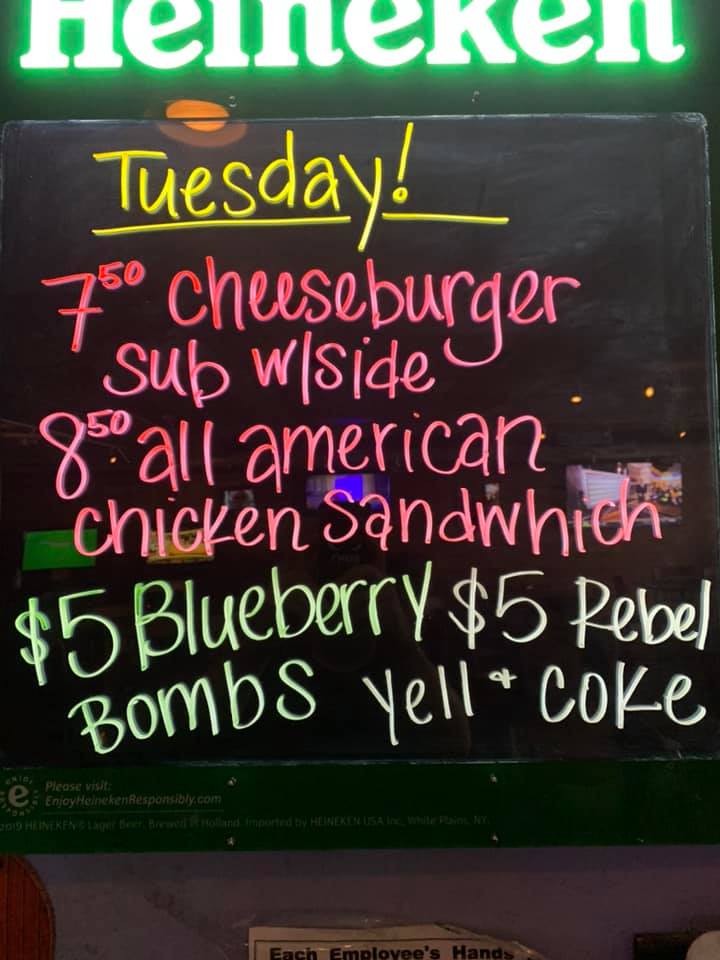 Heineken
Tuesday!
7⁵⁰ cheeseburger
sub w/side
8⁵⁰ all american
chicken sandwhich
$5 Blueberry $5 Rebel
Bombs yell + coke
Please visit:
EnjoyHeinekenResponsibly.com
2019 HEINEKEN® Lager Beer. Brewed in Holland. Imported by HEINEKEN USA Inc., White Plains, NY.
Each Employee's Hands